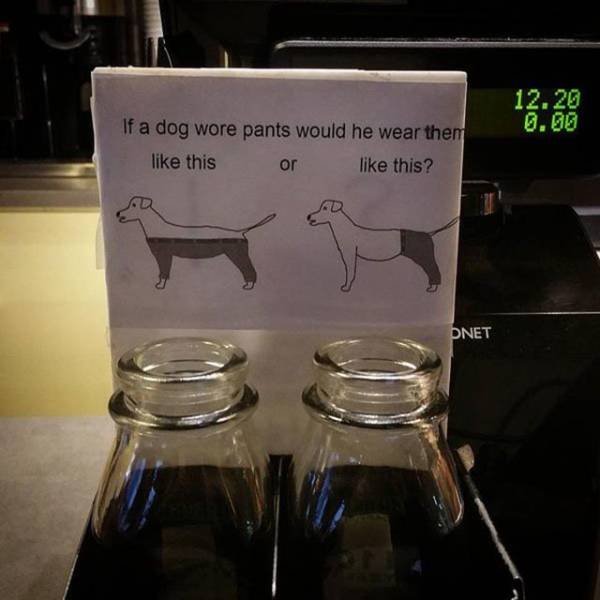 If a dog wore pants would he wear them
like this or like this?
12.20
0.00
ONET